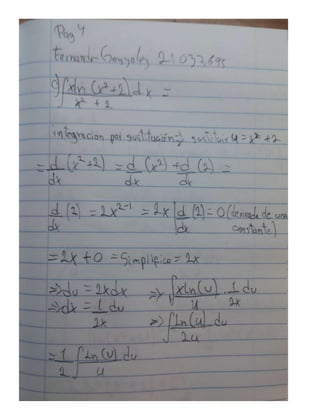 Pag 4
Fernando Gonzalez 21.037.695
c) ∫ xln(x²+2) dx =
x² + 2
integracion por sustitución => sustituir u = x² + 2
= d/dx (x²+2) = d/dx (x²) + d/dx (2) =
d/dx (2) = 2x²⁻¹ = 2x | d/dx (2) = 0 (derivada de una constante)
= 2x + 0 = Simplifico = 2x
=> du = 2x dx => ∫ xln(u)/u · 1/2x du
=> dx = 1/2x du => ∫ Ln(u)/2u du
= 1/2 ∫ Ln(u)/u du